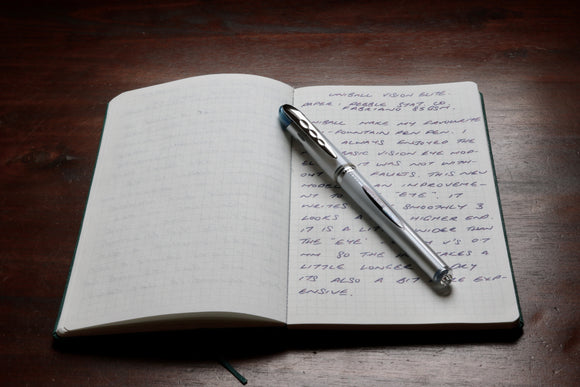 UNIBALL VISION ELITE.
PAPER: PEBBLE STAT CO.
FABRIANO 85GSM.
UNIBALL MAKE MY FAVOURITE
FOUNTAIN PEN PEN. I
ALWAYS ENJOYED THE
BASIC VISION EYE MOD-
IT WAS NOT WITH-
OUT FAULTS. THIS NEW
MODEL AN IMPROVEME-
NT TO "EYE". IT
WRITES SMOOTHLY &
LOOKS A HIGHER END.
IT IS A LIT WIDER THAN
THE "EYE" V'S 07
MM SO THE TAKES A
LITTLE LONGER DRY
ITS ALSO A BIT EXP-
ENSIVE.